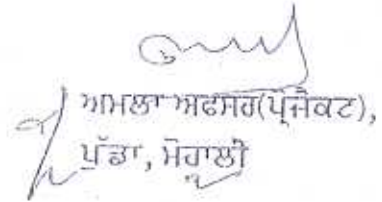 ਅਮਲਾ ਅਫਸਰ(ਪ੍ਰੋਜੈਕਟ),
ਪੁੱਡਾ, ਮੋਹਾਲੀ